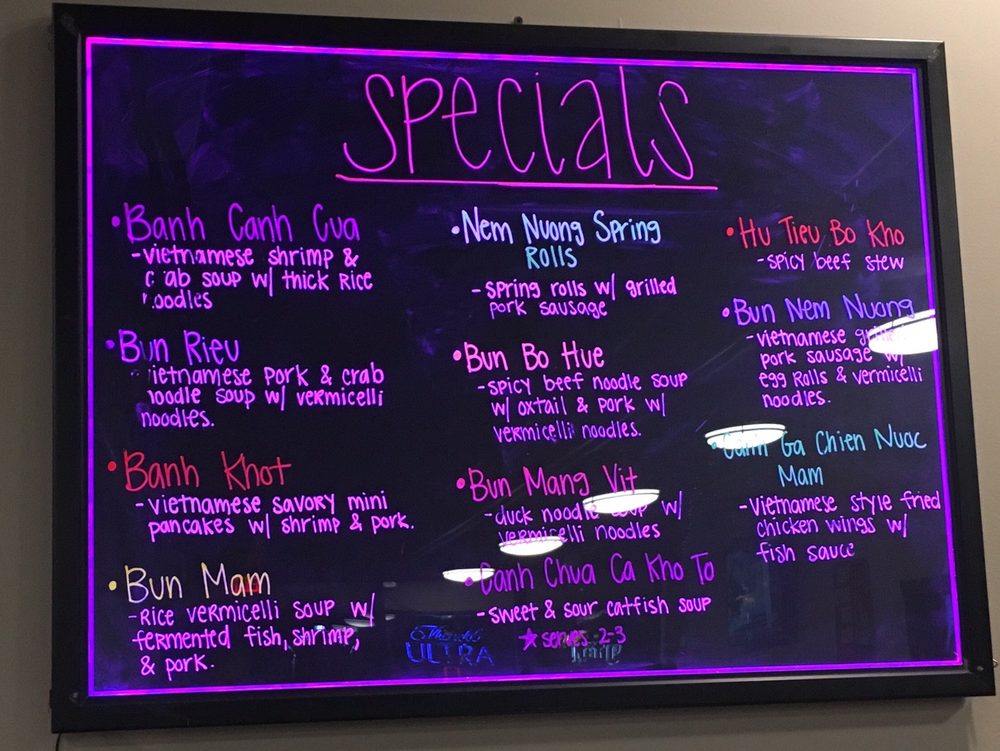 Specials
• Banh Canh Cua
- Vietnamese shrimp &
crab soup w/ thick rice
noodles
• Bun Rieu
- Vietnamese pork & crab
noodle soup w/ vermicelli
noodles.
• Banh Khot
- Vietnamese savory mini
pancakes w/ shrimp & pork.
• Bun Mam
- Rice vermicelli soup w/
fermented fish, shrimp,
& pork.
• Nem Nuong Spring
Rolls
- spring rolls w/ grilled
pork sausage
• Bun Bo Hue
- spicy beef noodle soup
w/ oxtail & pork w/
vermicelli noodles.
• Bun Mang Vit
- duck noodle soup w/
vermicelli noodles
• Canh Chua Ca Kho To
- sweet & sour catfish soup
★ serves 2-3
ULTRA
• Hu Tieu Bo Kho
- spicy beef stew
• Bun Nem Nuong
- Vietnamese grilled
pork sausage w/
egg rolls & vermicelli
noodles.
• Canh Ga Chien Nuoc
Mam
- Vietnamese style fried
chicken wings w/
fish sauce